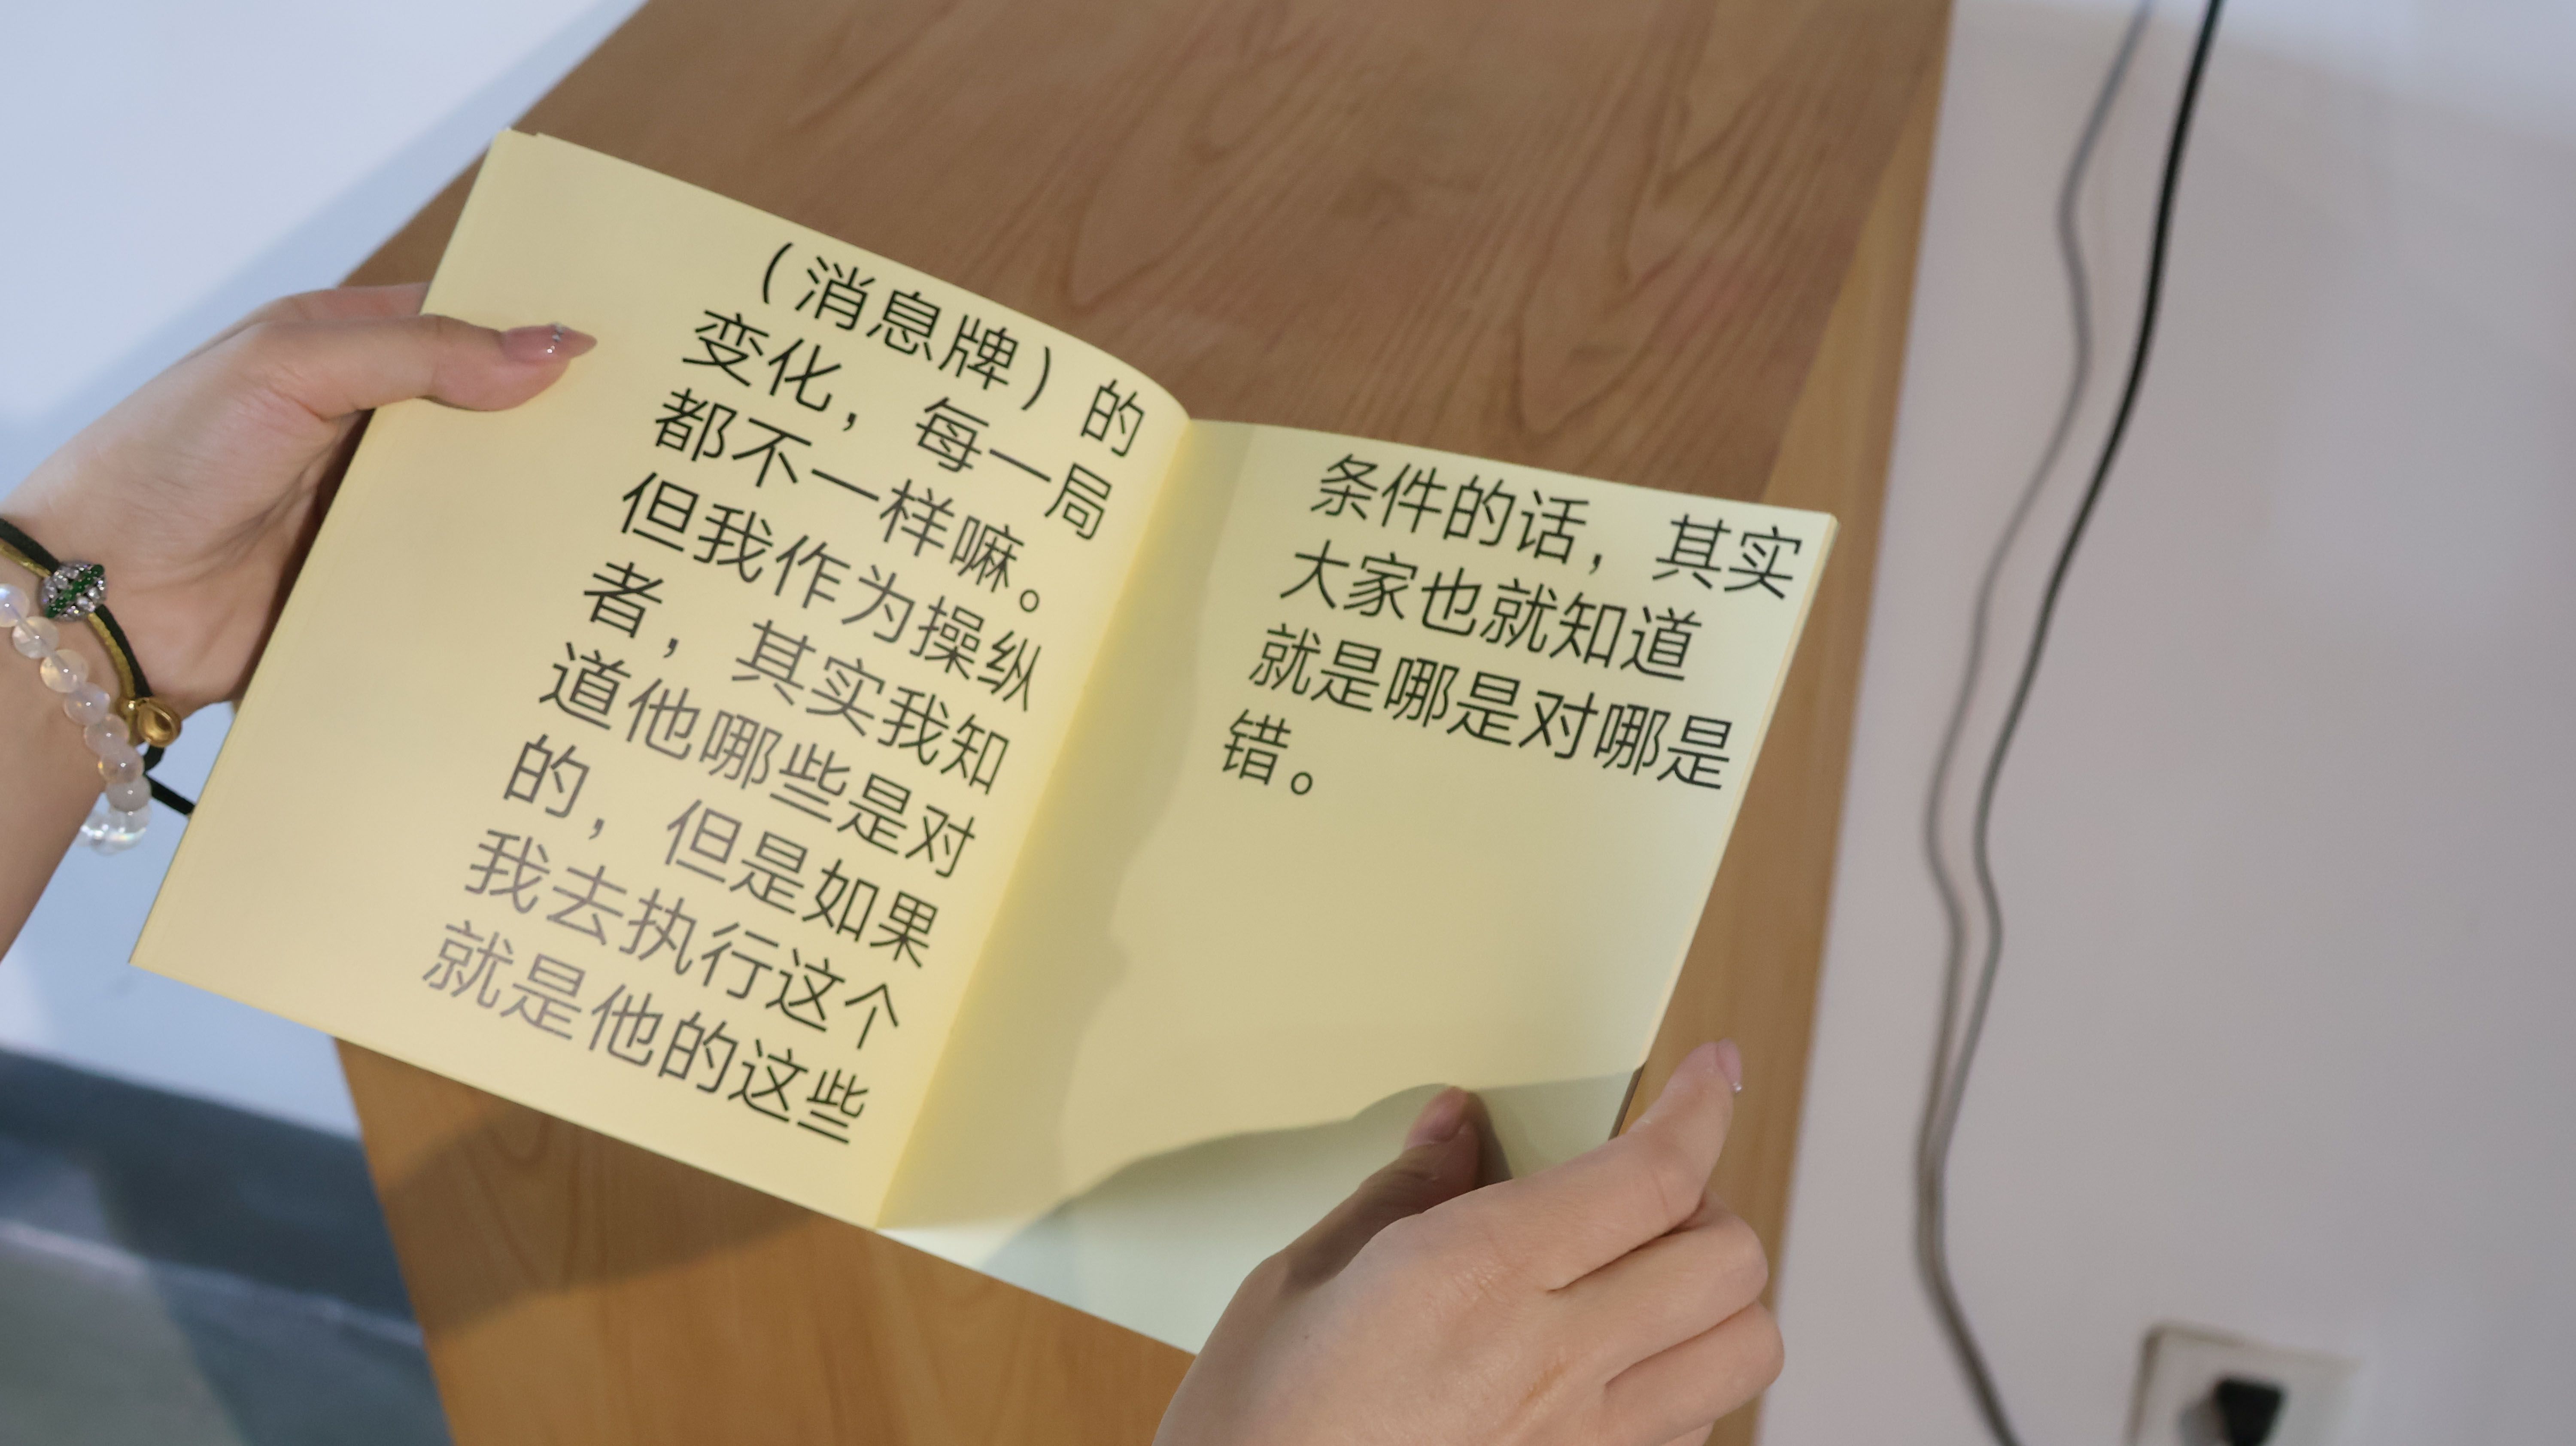 （消息牌）的
变化，每一局
都不一样嘛。
但我作为操纵
者，其实我知
道他哪些是对
的，但是如果
我去执行这个
就是他的这些
条件的话，其实
大家也就知道
就是哪是对哪是
错。